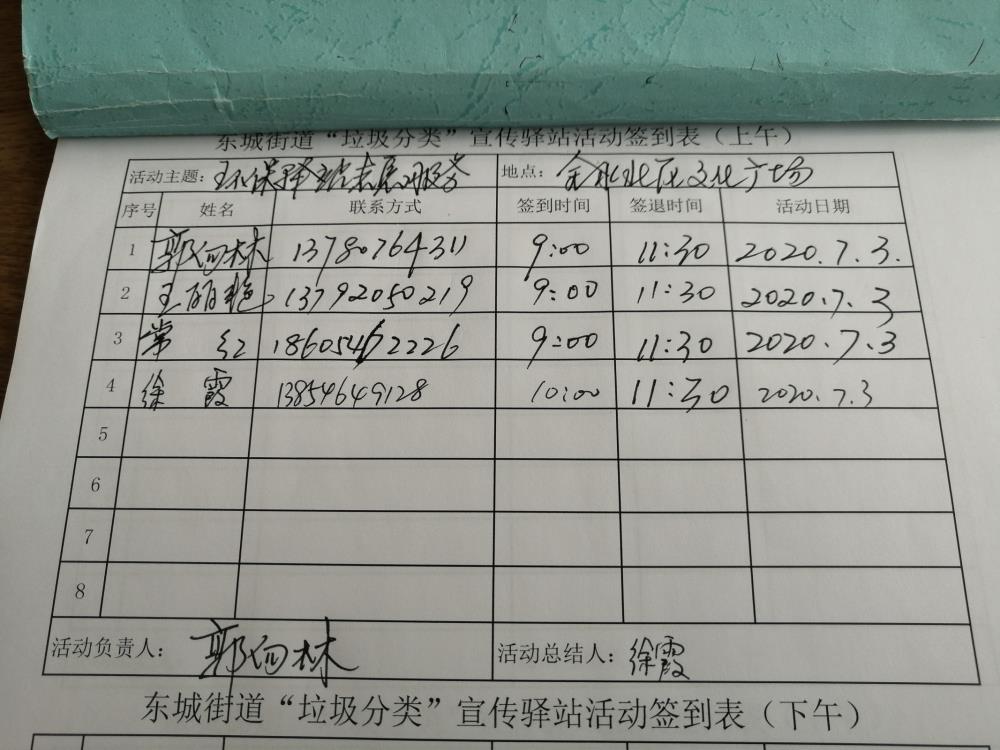 东城街道“垃圾分类”宣传驿站活动签到表（上午）
活动主题：环保驿站志愿服务 地点：金水社区文化广场
序号 姓名 联系方式 签到时间 签退时间 活动日期
1 郭向林 13780764311 9:00 11:30 2020.7.3.
2 王丽艳 13792050219 9:00 11:30 2020.7.3
3 常红 18605462226 9:00 11:30 2020.7.3
4 徐霞 13854649128 10:00 11:30 2020.7.3
5
6
7
8
活动负责人：郭向林 活动总结人：徐霞
东城街道“垃圾分类”宣传驿站活动签到表（下午）